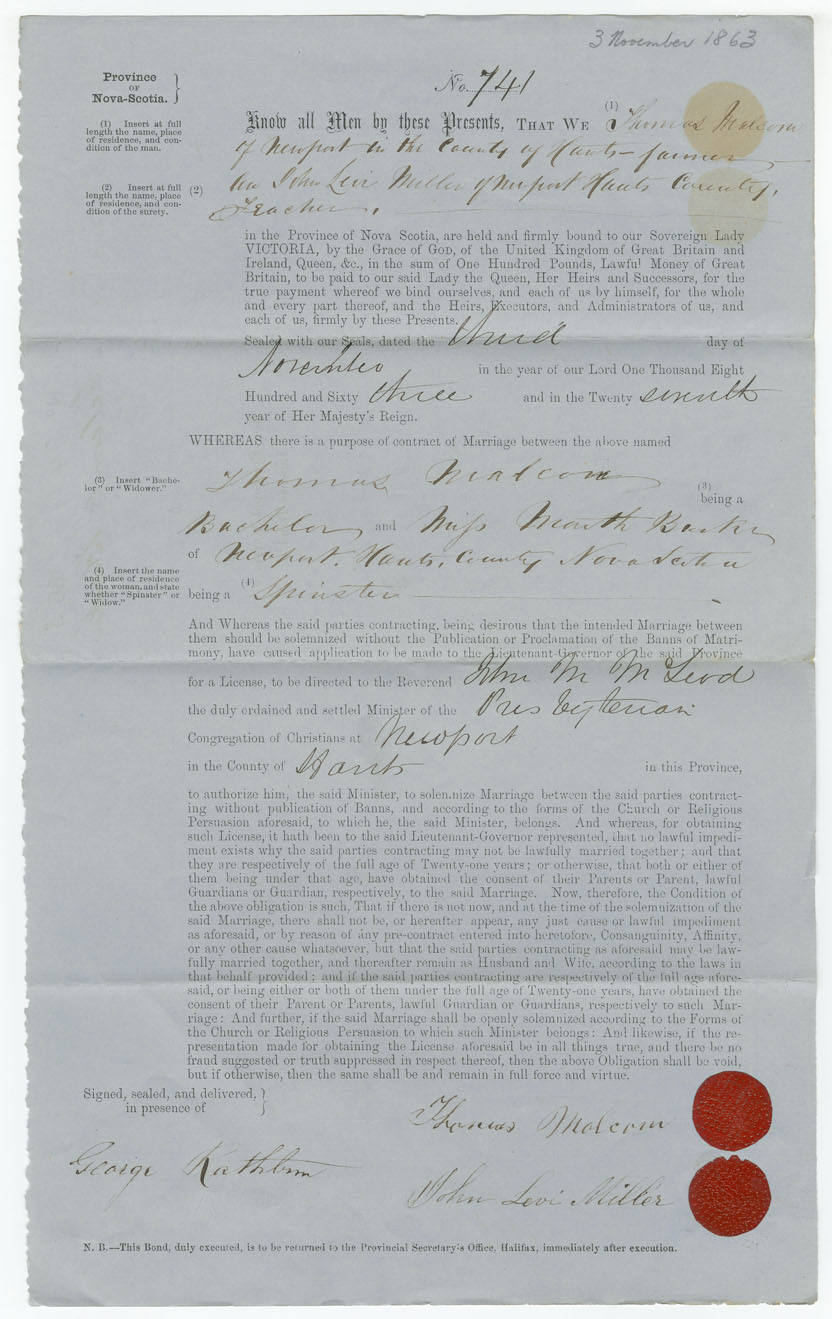 3 November 1863
Province
OF
Nova-Scotia.
No. 741
(1) Insert at full
length the name, place
of residence, and con-
dition of the man.
Know all Men by these Presents, THAT WE (1) Thomas Malcom
of Newport in the County of Hants - farmer
(2) Insert at full
length the name, place
of residence, and con-
dition of the surety.
(2) John Levi Miller of Newport Hants County,
Teacher.
in the Province of Nova Scotia, are held and firmly bound to our Sovereign Lady
VICTORIA, by the Grace of GOD, of the United Kingdom of Great Britain and
Ireland, Queen, &c., in the sum of One Hundred Pounds, Lawful Money of Great
Britain, to be paid to our said Lady the Queen, Her Heirs and Successors, for the
true payment whereof we bind ourselves, and each of us by himself, for the whole
and every part thereof, and the Heirs, Executors, and Administrators of us, and
each of us, firmly by these Presents.
Sealed with our Seals, dated the third day of
November in the year of our Lord One Thousand Eight
Hundred and Sixty three and in the Twenty seventh
year of Her Majesty's Reign.
WHEREAS there is a purpose of contract of Marriage between the above named
(3) Insert "Bache-
lor" or "Widower."
Thomas Malcom (3)
being a
Bachelor and Miss
of Newport, Hants, County Nova Scotia
(4) Insert the name
and place of residence
of the woman, and state
whether "Spinster" or
"Widow."
being a (4) Spinster
And Whereas the said parties contracting, being desirous that the intended Marriage between
them should be solemnized without the Publication or Proclamation of the Banns of Matri-
mony, have caused application to be made to the Lieutenant-Governor of the said Province
for a License, to be directed to the Reverend John M McLeod
the duly ordained and settled Minister of the Presbyterian
Congregation of Christians at Newport
in the County of Hants in this Province,
to authorize him, the said Minister, to solemnize Marriage between the said parties contract-
ing without publication of Banns, and according to the forms of the Church or Religious
Persuasion aforesaid, to which he, the said Minister, belongs. And whereas, for obtaining
such License, it hath been to the said Lieutenant-Governor represented, that no lawful impedi-
ment exists why the said parties contracting may not be lawfully married together; and that
they are respectively of the full age of Twenty-one years; or otherwise, that both or either of
them being under that age, have obtained the consent of their Parents or Parent, lawful
Guardians or Guardian, respectively, to the said Marriage. Now, therefore, the Condition of
the above obligation is such, That if there is not now, and at the time of the solemnization of the
said Marriage, there shall not be, or hereafter appear, any just cause or lawful impediment
as aforesaid, or by reason of any pre-contract entered into heretofore, Consanguinity, Affinity,
or any other cause whatsoever, but that the said parties contracting as aforesaid may be law-
fully married together, and thereafter remain as Husband and Wife, according to the laws in
that behalf provided; and if the said parties contracting are respectively of the full age afore-
said, or being either or both of them under the full age of Twenty-one years, have obtained the
consent of their Parent or Parents, lawful Guardian or Guardians, respectively to such Mar-
riage: And further, if the said Marriage shall be openly solemnized according to the Forms of
the Church or Religious Persuasion to which such Minister belongs: And likewise, if the re-
presentation made for obtaining the License aforesaid be in all things true, and there be no
fraud suggested or truth suppressed in respect thereof, then the above Obligation shall be void,
but if otherwise, then the same shall be and remain in full force and virtue.
Signed, sealed, and delivered,
in presence of
Thomas Malcom
George Rathbun
John Levi Miller
N. B.—This Bond, duly executed, is to be returned to the Provincial Secretary's Office, Halifax, immediately after execution.